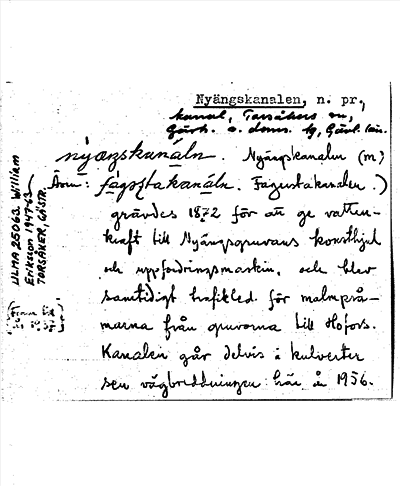 Nyängskanalen, n. pr.,
kanal, Torsåkers sn,
Gästr. ö. doms. tg, Gävl. län.
nyæŋskanáln. Nyängskanalen (m)
Även: fágǝʂtakanáln. Fagerstakanalen.)
grävdes 1872 för att ge vatten-
kraft till Nyängsgruvans konsthjul
och uppfordringsmaskin, och blev
samtidigt trafikled för malmprå-
marna från gruvorna till Hofors.
Kanalen går delvis i kulverter
sen vägbreddningen här år 1956.
ULMA 25063. William
Eriksson 1947-63
TORSÅKER, GÄSTR.